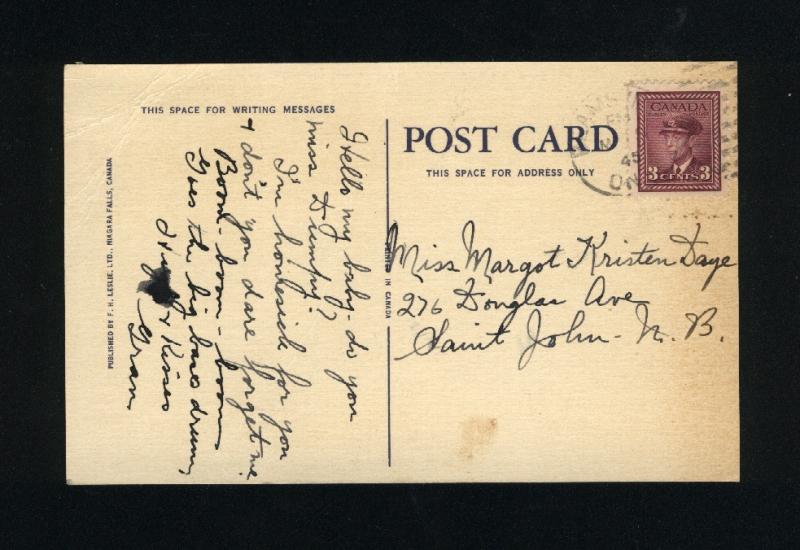 THIS SPACE FOR WRITING MESSAGES
Hello my baby - do you
miss Dumpy?
I'm homesick for you
& don't you dare forget me
Boom - boom - boom
Goes the big bass drum,
& Kisses
Gran
PUBLISHED BY F. H. LESLIE, LTD., NIAGARA FALLS, CANADA
IN CANADA
POST CARD
THIS SPACE FOR ADDRESS ONLY
CANADA
3 CENTS 3
45
ON
Miss Margot Kristen Daye
276 Douglas Ave
Saint John - N. B.